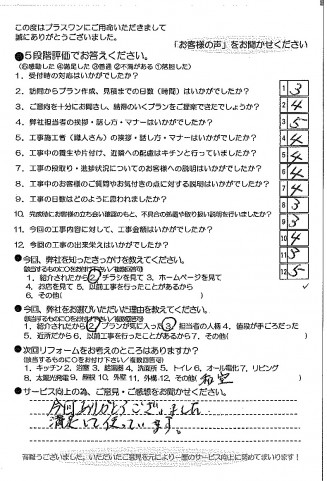 この度はプラスワンにご用命いただきまして
誠にありがとうございました。
「お客様の声」をお聞かせください
●５段階評価でお答えください。
(⑤感動した ④満足した ③普通 ②不満がある ①落胆した)
1．受付時の対応はいかがでしたか？
2．訪問からプラン作成、見積までの日数（時間）はいかがでしたか？
3．ご意向を十分にお聞きし、納得のいくプランをご提案できたでしょうか？
4．弊社担当者の挨拶・話し方・マナーはいかがでしたか？
5．工事施工者（職人さん）の挨拶・話し方・マナーはいかがでしたか？
6．工事中の養生や片付け、近隣への配慮はキチンと行っていましたか？
7．工事の段取り・進捗状況についてのお客様への説明はいかがでしたか？
8．工事中のお客様のご質問やお気付きの点に対する説明はいかがでしたか？
9．工事の日数はどのように思われましたか？
10．完成時にお客様の立ち会い確認のもと、不具合の処置や取り扱い説明を行いましたか？
11．今回の工事内容に対して、工事金額はいかがでしたか？
12．今回の工事の出来栄えはいかがでしたか？
1 3
2 4
3 5
4 4
5 4
6 4
7 4
8 3
9 3
10 4
11 3
12 5
●今回、弊社を知ったきっかけを教えてください。
(該当するものに○をお付け下さい／複数回答可)
1．紹介されたから ② チラシを見て 3．ホームページを見て
4．お店を見て 5．以前工事を行ったことがあるから
6．その他( )
●今回、弊社をお選びいただいた理由を教えてください。
(該当するものに○をお付け下さい／複数回答可)
1．紹介されたから ② プランが気に入った ③ 担当者の人柄 4．値段が手ごろだった
5．近所だから 6．以前工事を行ったことがあるから 7．その他( )
●次回リフォームをお考えのところはありますか？
(該当するものに○をお付け下さい／複数回答可)
1．キッチン 2．浴室 3．給湯器 4．洗面所 5．トイレ 6．オール電化 7．リビング
8．太陽光発電 9．屋根 10．外壁 11．外構 12．その他( 和室 )
●サービス向上の為、ご意見・ご感想をお聞かせください。
今回ありがとうございました
満足して使っています。
有難うございました。いただいたご意見を元により一層のサービス向上に努めてまいります！